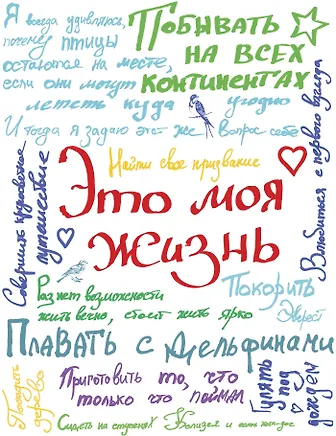 Я всегда удивляюсь,
почему птицы
остаются на месте,
если они могут
лететь куда угодно
И тогда я задаю этот же вопрос себе
Побывать
на всех
континентах
Влюбиться с первого взгляда
Найти свое призвание
Совершить кругосветное
путешествие
Это моя
жизнь
Покорить
Эверест
Раз нет возможности
жить вечно, стоит жить ярко
Плавать с дельфинами
Посадить
дерево
Приготовить то, что
только что поймал
Гулять
под
дождем
Сидеть на ступенях